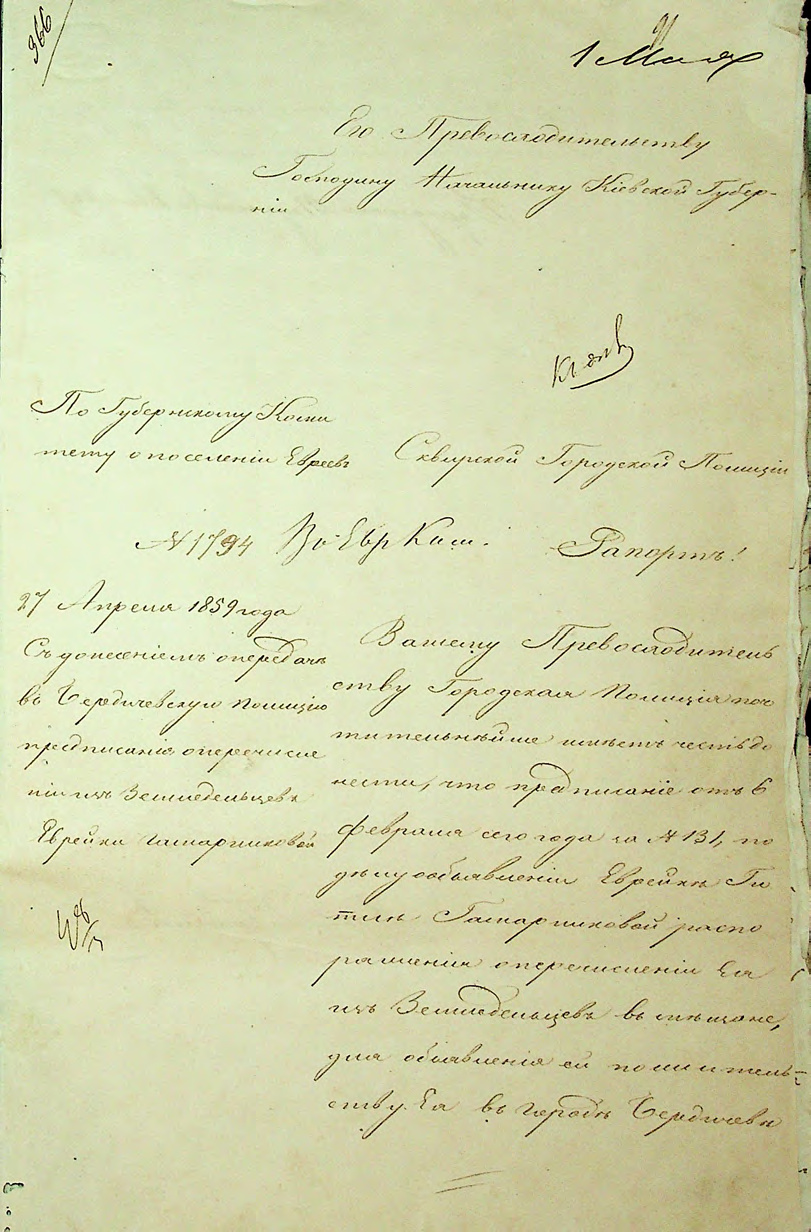 366
91
1 Мая
Его Превосходительству
Господину Начальнику Кіевской Губер-
ніи
По Губернскому Коми
тету о поселеніи Евреевъ
№ 1794 Въ Евр Ком.
27 Апреля 1859 года
Съ донесеніемъ о передачи
въ Бердичевскую Полицію
предписанія о перечисле
ніи изъ Земледельцевъ
Еврейки Гамарниковой
Сквирской Городской Полиціи
Рапортъ!
Вашему Превосходитель
ству Городская Полиція поч
тительнѣйше имѣетъ честь до
нести, что предписаніе отъ 6
февраля сего года за № 131, по
дѣлу объявленіи Еврейкѣ Ги
тлѣ Гамарниковой распо
ряженія о перечисленіи Ея
изъ Земледельцевъ въ мѣщане,
для объявленія ей по жытель-
ству Ея въ городѣ Бердичевѣ